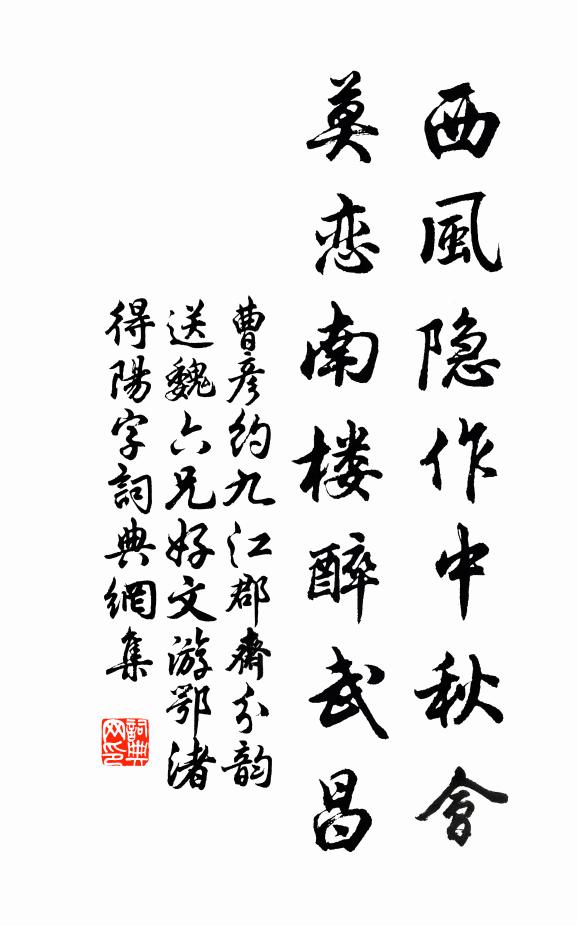 西風隐作中秋會
莫恋南楼醉武昌
曹彦约九江郡齋分韵
送魏六兄好文游鄂渚
得陽字詞典網集
詞典网印